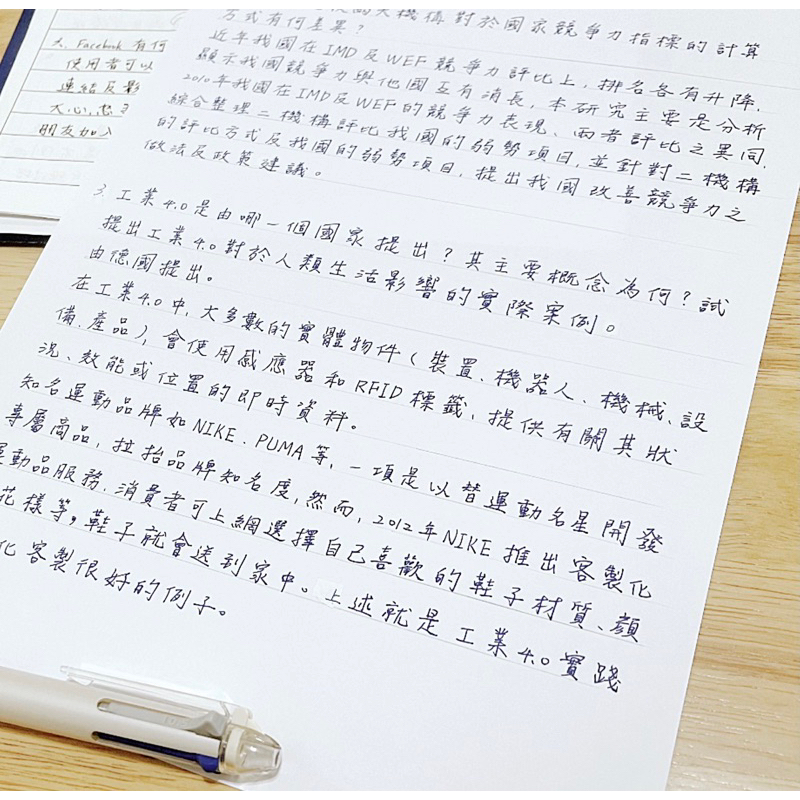 大機構對於國家競爭力指標的計算
方式有何差異?
近年我國在IMD及WEF競爭力評比上,排名各有升降,
顯示我國競爭力與他國互有消長,本研究主要是分析
2010年我國在IMD及WEF的競爭力表現、兩者評比之異同,
綜合整理二機構評比我國的弱勢項目,並針對二機構
的評比方式及我國的弱勢項目,提出我國改善競爭力之
做法及政策建議。
3. 工業4.0是由哪一個國家提出?其主要概念為何?試
提出工業4.0對於人類生活影響的實際案例。
由德國提出。
在工業4.0中,大多數的實體物件(裝置、機器人、機械、設
備、產品),會使用感應器和RFID標籤,提供有關其狀
況、效能或位置的即時資料。
知名運動品牌如NIKE、PUMA等,一項是以替運動名星開發
專屬商品,拉抬品牌知名度,然而,2012年NIKE推出客製化
運動品服務,消費者可上網選擇自己喜歡的鞋子材質、顏
花樣等,鞋子就會送到家中。上述就是工業4.0實踐
化客製很好的例子。
Facebook 有何
使用者可以
連結及影
朋友加入